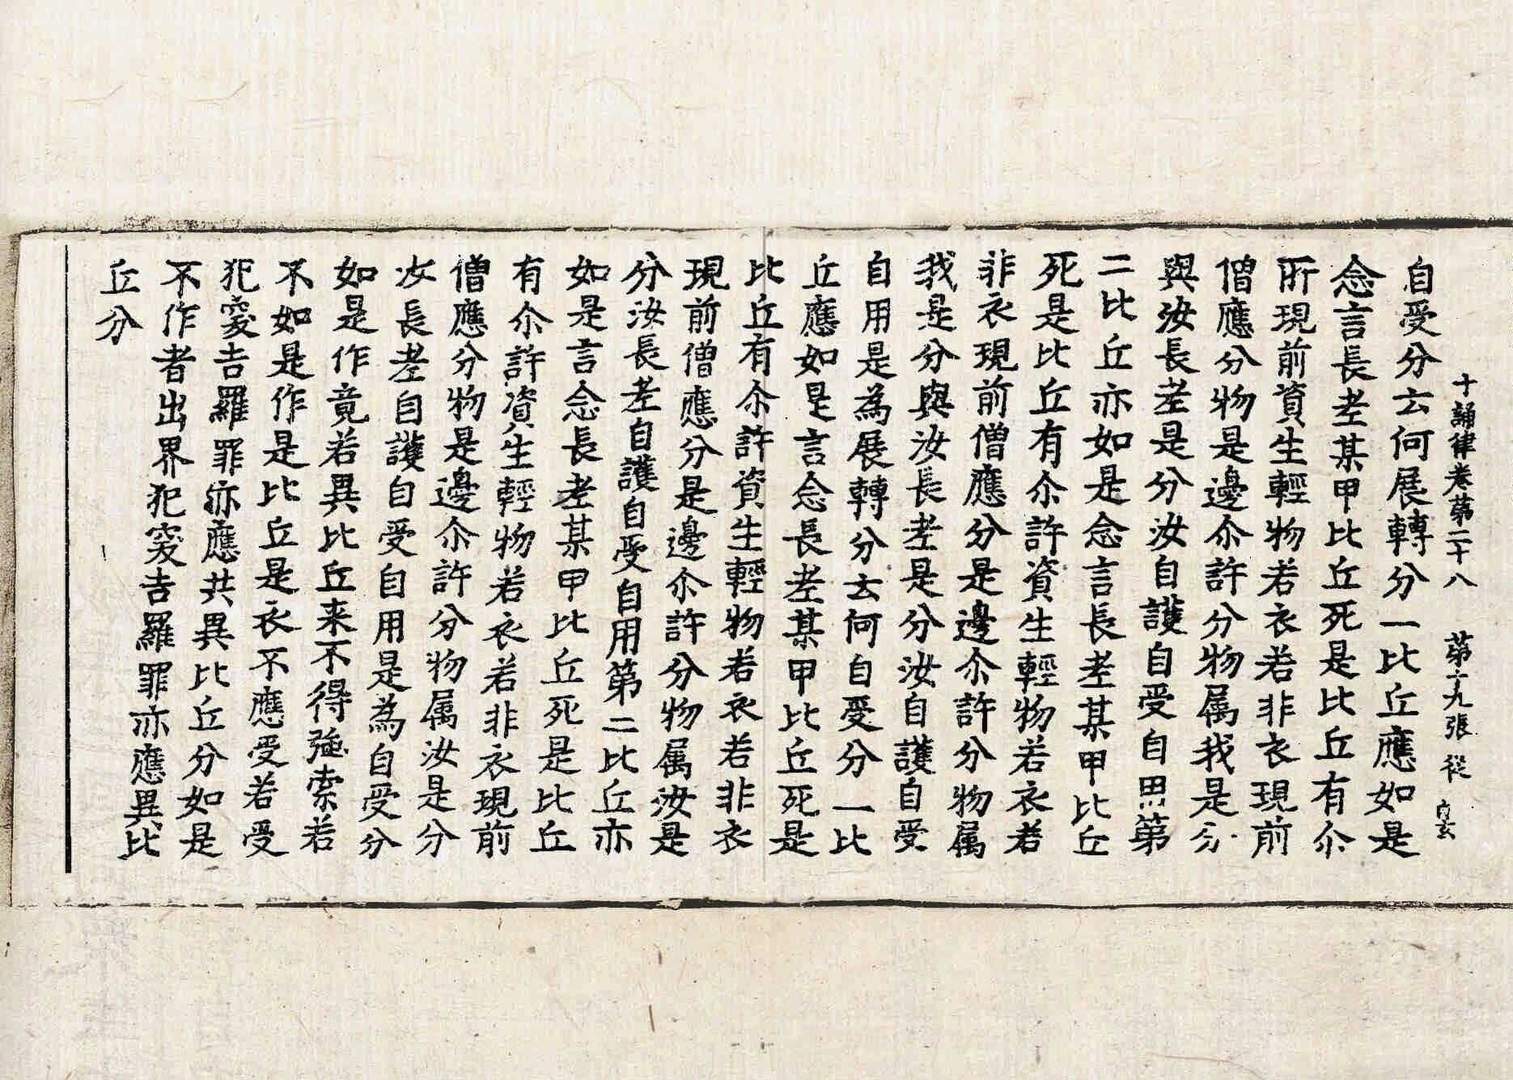 十誦律卷苐二十八 苐十九張 從
自受分云何展轉分一比丘應如是
念言長老某甲比丘死是比丘有尒
所現前資生輕物若衣若非衣現前
僧應分物是邊尒許分物属我是分
與汝長老是分汝自護自受自思第
二比丘亦如是念言長老某甲比丘
死是比丘有尒許資生輕物若衣若
非衣現前僧應分是邊尒許分物属
我是分與汝長老是分汝自護自受
自用是為展轉分云何自受分一比
丘應如是言念長老某甲比丘死是
比丘有尒許資生輕物若衣若非衣
現前僧應分是邊尒許分物属汝是
分汝長老自護自受自用第二比丘亦
如是言念長老某甲比丘死是比丘
有尒許資生輕物若衣若非衣現前
僧應分物是邊尒許分物属汝是分
汝長老自護自受自用是為自受分
如是作竟若異比丘来不得强索若
不如是作是比丘是衣不應受若受
犯突吉羅罪亦應共異比丘分如是
不作者出界犯突吉羅罪亦應異比
丘分